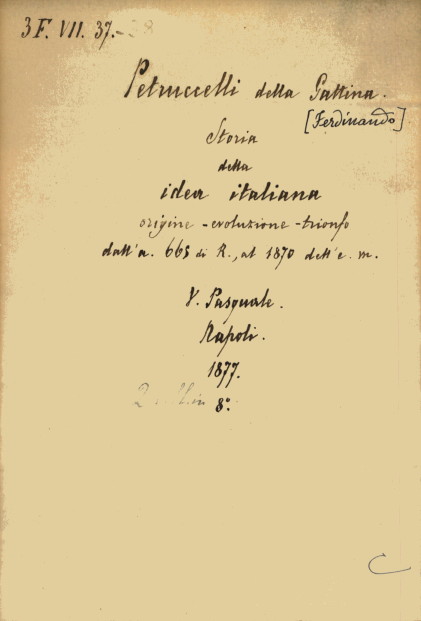 3 F. VII. 37.-38
Petruccelli della Gattina.
[Ferdinando]
Storia
della
idea italiana
origine - evoluzione - trionfo
dall'a. 665 di R., al 1870 dell'e. m.
V. Pasquale.
Napoli.
1877.
2 in 8°.
C